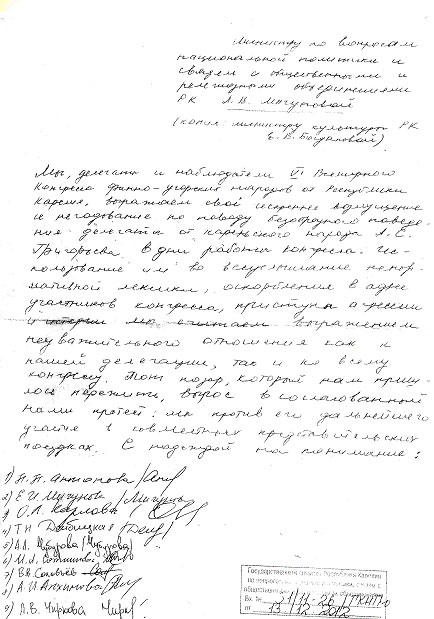 Министру по вопросам
национальной политики и
связям с общественными и
религиозными объединениями
РК Л.В.
(копия: министру культуры РК
Е.В. Богдановой)
Мы, делегаты и наблюдатели VI Всемирного
Конгресса финно-угорских народов от Республики
Карелия, выражаем своё искреннее возмущение
и негодование по поводу безобразного поведе-
ния делегата от карельского народа А.Е.
Григорьева в дни работы конгресса. Ис-
пользование им во всеуслышание ненор-
мативной лексики, оскорбления в адрес
участников конгресса, приступы агрессии
и истерии мы считаем выражением
неуважительного отношения как к
нашей делегации, так и ко всему
конгрессу. Тот позор, который нам приш-
лось пережить, вырос в согласованный
нами протест: мы против его дальнейшего
участия в совместных представительских
поездках. С надеждой на понимание:
1) Н.П. Антонова
2) Е.И. Мигунова /Мигунова
3) О.Л. Карлова
4) Т.Н.
5) А.Л.
6) И.Л.
7) В.В. Соловьёв
8) А.И. Анхимова
9) А.В. Чиркова
Государственный комитет Республики Карелия
по вопросам национальной политики, связям с
Вх. №
от 13.12.2012